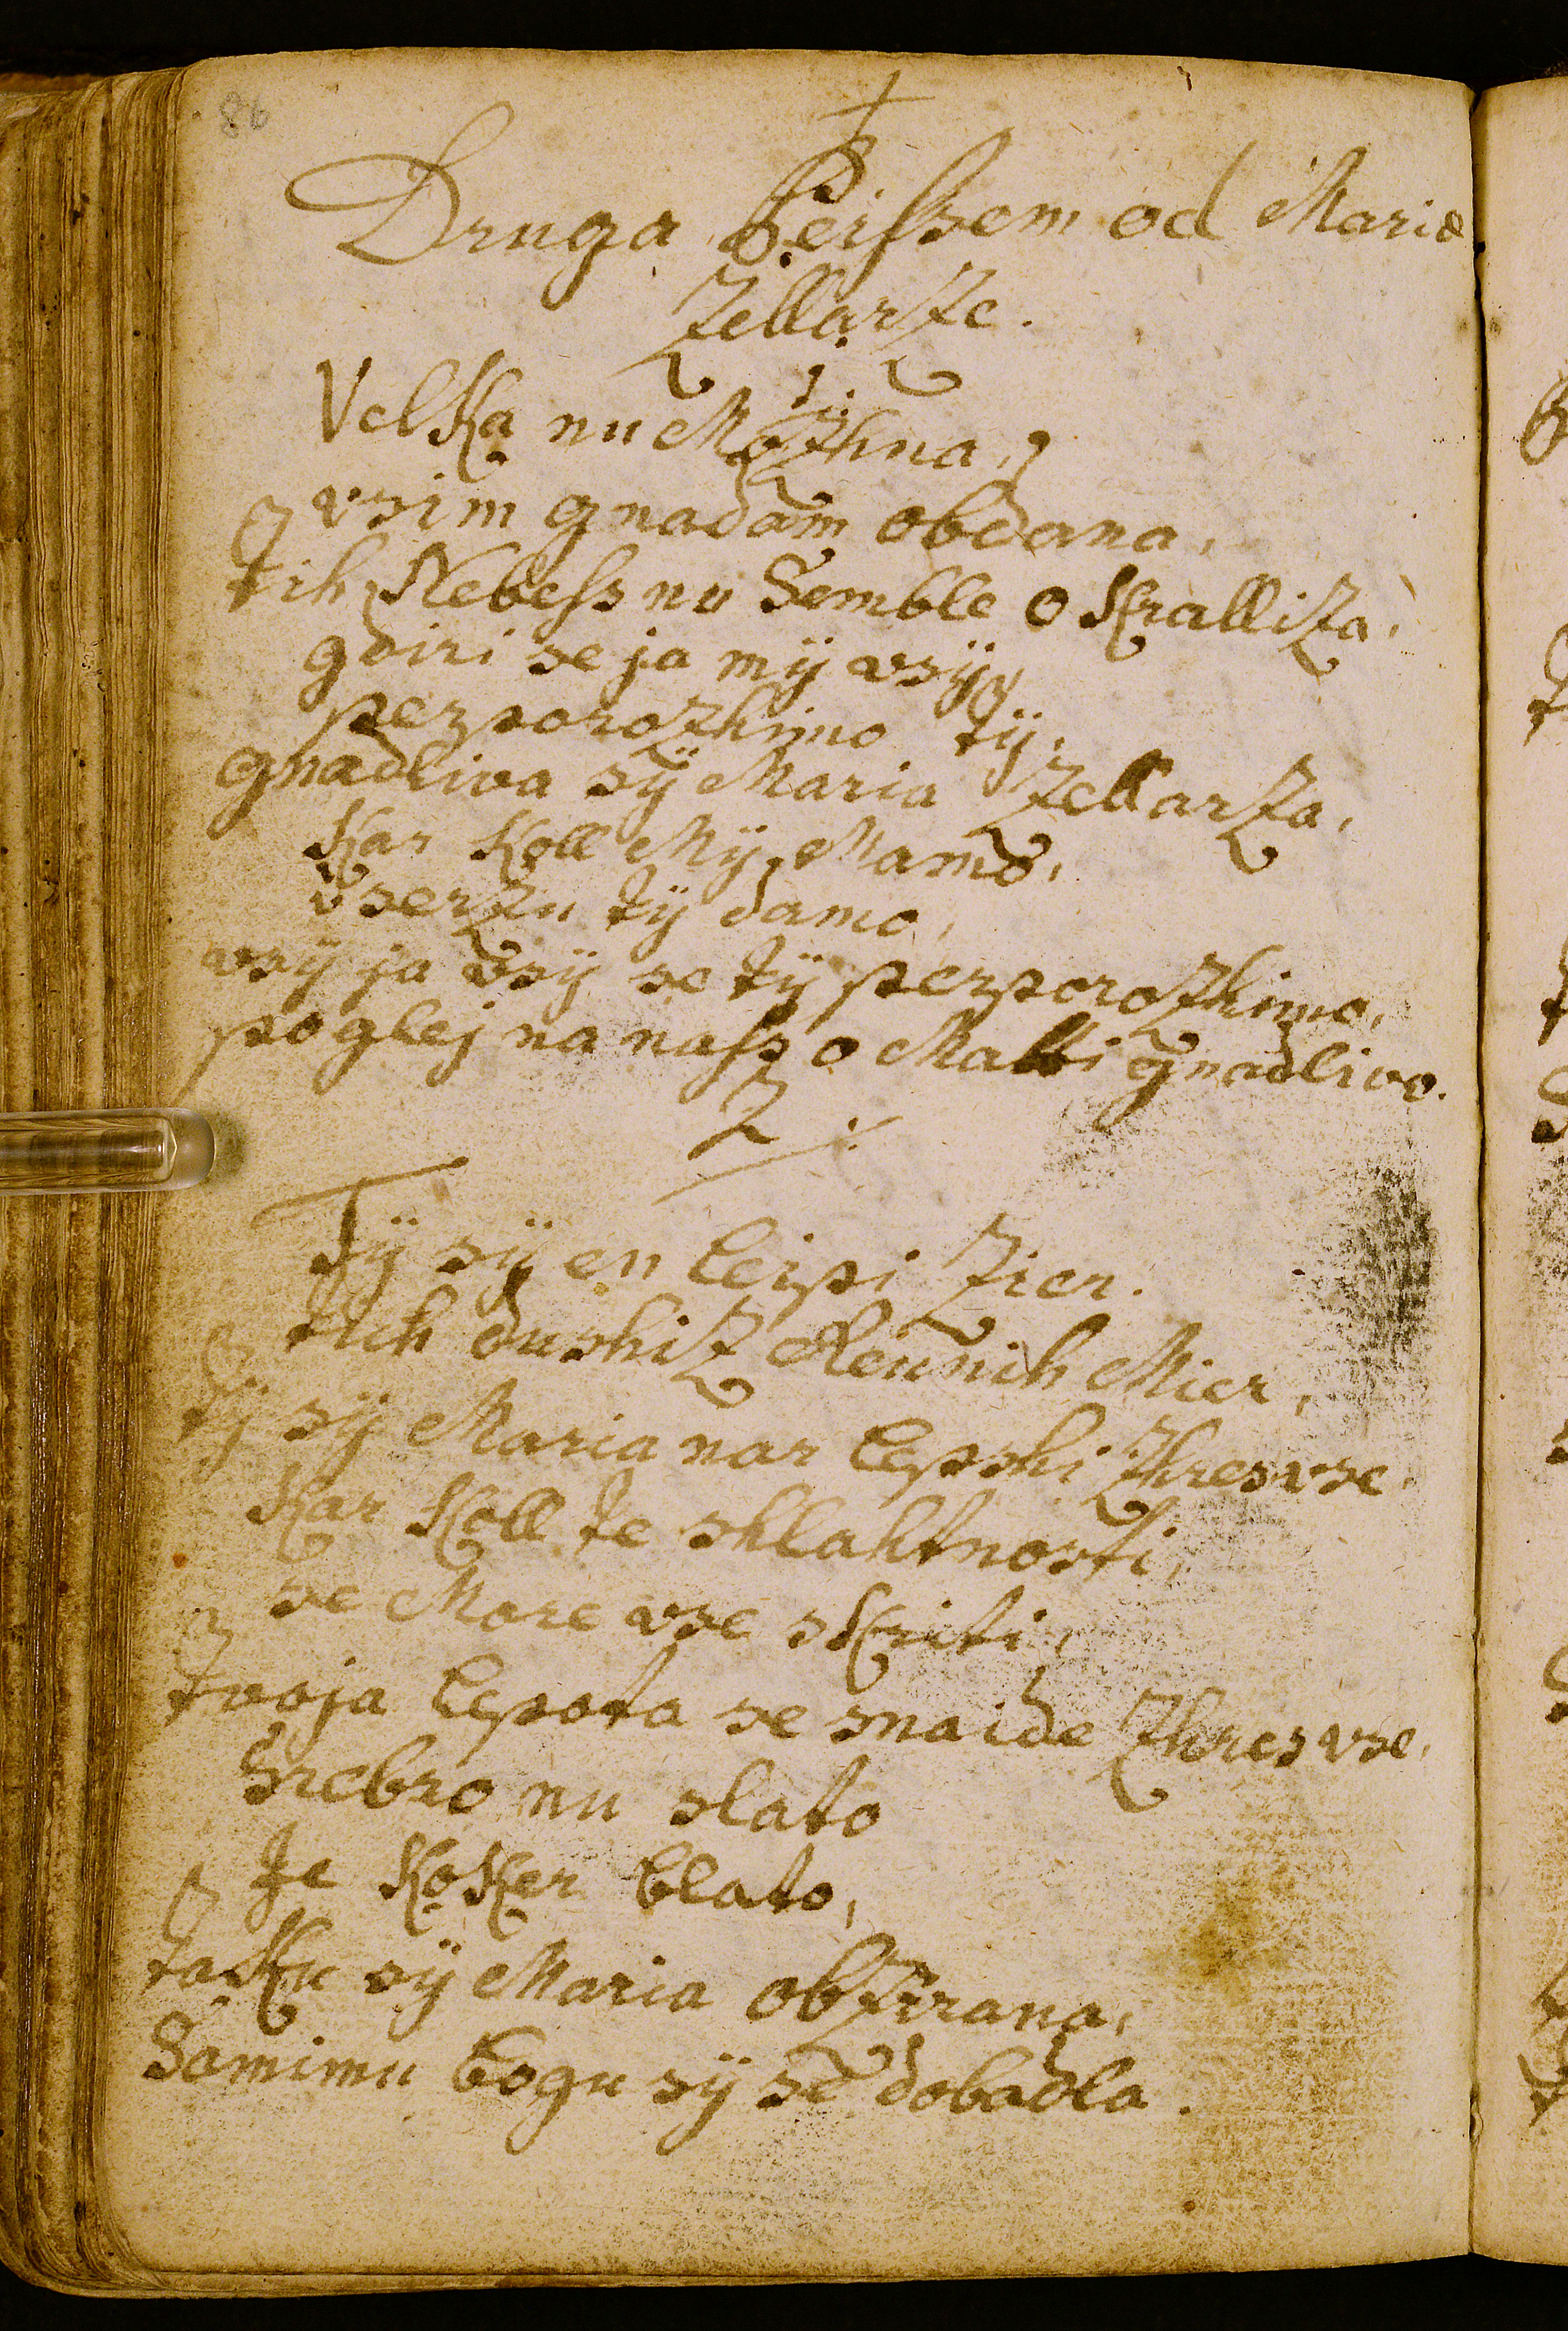 86
Druga Peissem od Marie
Zellarze.
1
Velka nu Mozhna,
vsim gnadam obdana,
tih Nebess nu Semble o Kralliza,
gdiri se ja mÿ vsÿ
perporozhimo tÿ,
gnadliva sÿ Maria Zellarza,
Kar Koll Mÿ Mamo,
vserzu tÿ damo,
vsÿ ja vsÿ se tÿ perporozhimo,
poglej na nass o Matti gnadliva.
2
Tÿ sÿ en leipi Zier.
tih dushiz Reunih Mier,
tÿ sÿ Maria nar lepshi zhres vse
Kar Koll te shlahtnosti,
se More vse skriti,
tvoja lepota se snaide zhres vse,
Srebro nu slato
Je Koker blato,
taku sÿ Maria obzirana,
Samimu bogu sÿ se dobadla.